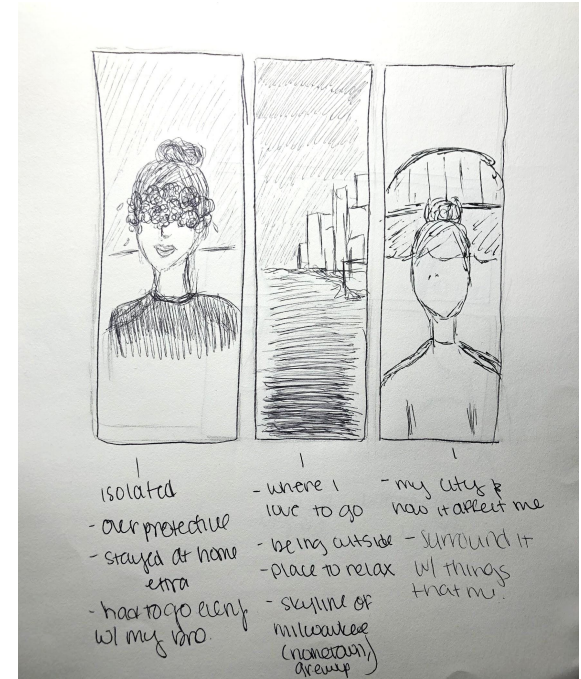 isolated
- over protective
- stayed at home
extra
- had to go every
w/ my bro.
- where I
love to go
- being outside
- place to relax
- skyline of
milwaukee
(hometown)
grewup
- my city &
how it affect me
- surround it
w/ things
that me.